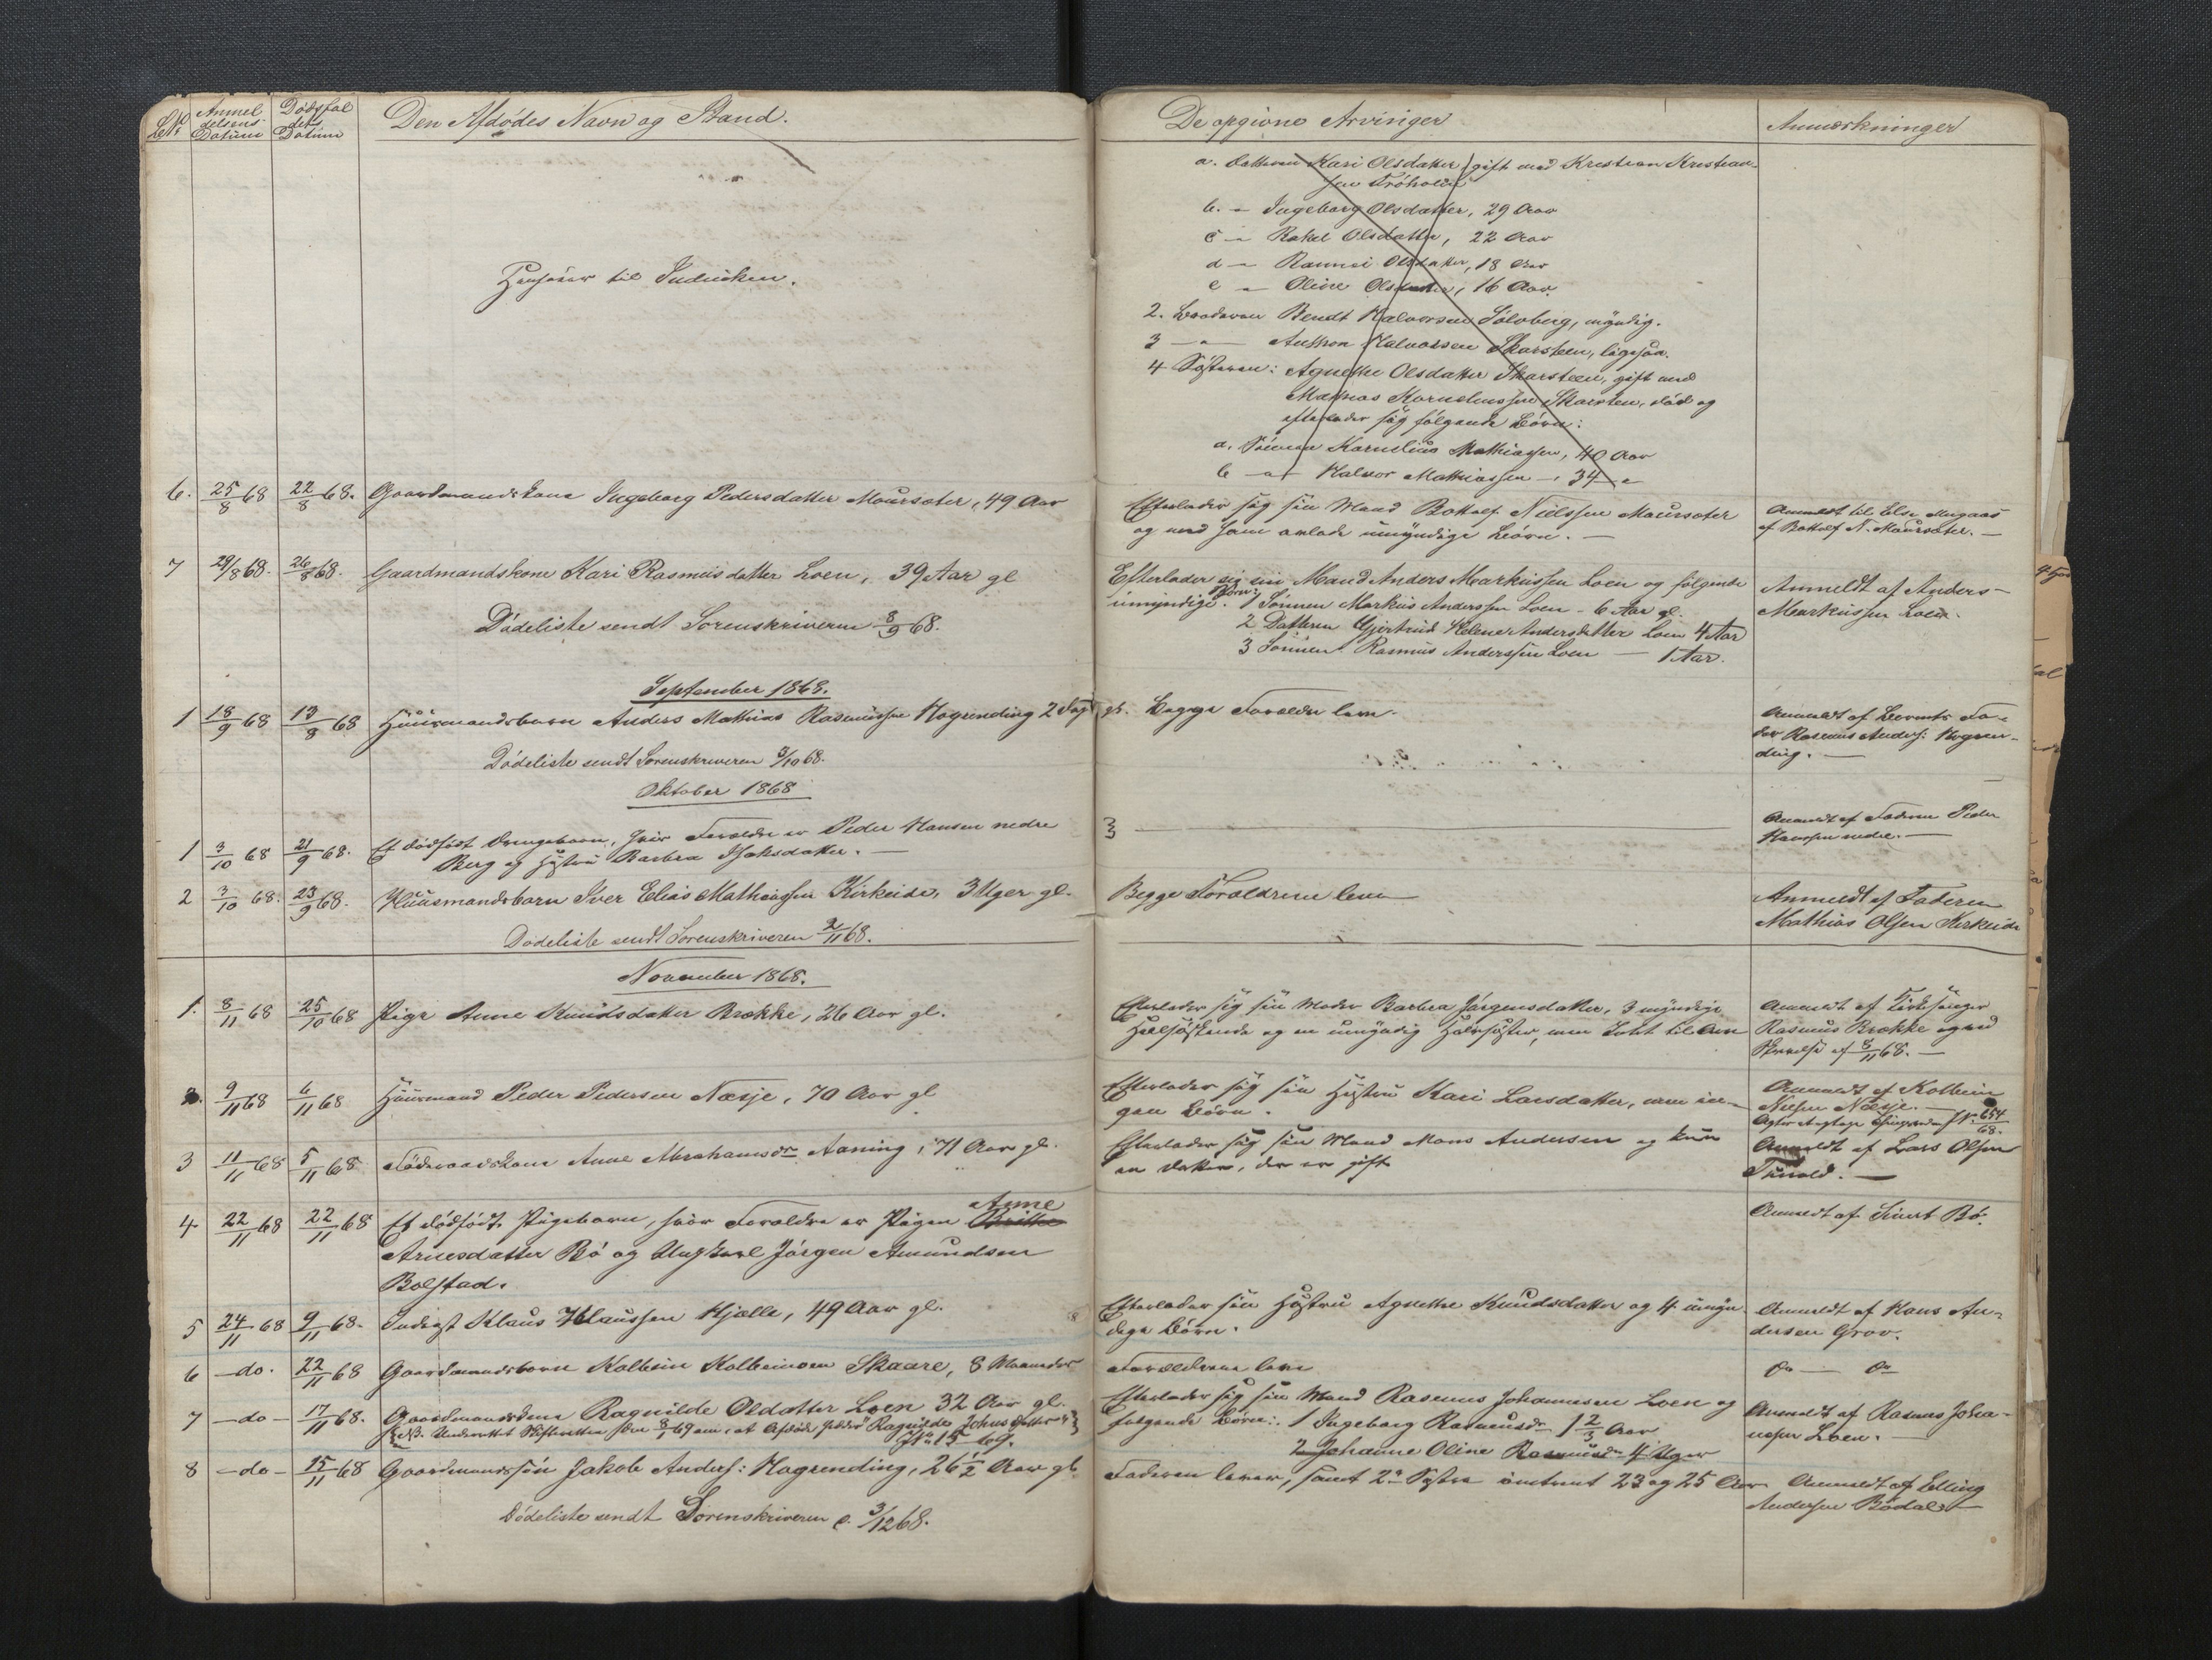 LNo
Anmel
delsens
Datum
Dødsfal
dets
Datum
Den Afdødes Navn og Stand.
De opgivne Arvinger
Anmærkninger
a. Datteren Kari Olsdatter, gift med Kristian Kristian-
sen
b. - Ingeborg Olsdatter, 29 Aar
c - Rakel Olsdatter, 22 Aar
d - Olsdatter, 18 Aar
e - Oline Olsdatter, 16 Aar.
2. Broderen Bendt Halvorsen Solvberg, myndig.
3 - " - Anthon Halvorsen Skarsteen, ligesaa.
4 Søsteren: Agnethe Olsdatter Skarsteen, gift med
Mathias Korneliussen Skarsteen, død og
efterlader sig følgende Børn:
a. Sønnen Kornelius Mathiassen, 40 Aar
b - " - Halvor Mathiassen - , 34 "
Henføres til
6. 25/8 68 22/8 68. Gaardmandskone Ingeborg Pedersdatter Maursæter, 49 Aar
Efterlader sig sin Mand Botholf Nielssen Maursæter
og med ham avlede umyndige Børn. —
Anmeldt til Else
af Botholf N. Maursæter. —
7 29/8 68. 26/8 68. Gaardmandskone Kari Rasmusdatter Loen, 39 Aar gl
Efterlader sig sin Mand Anders Markussen Loen og følgende
umyndige Børn: 1 Sønnen Markus Anderssen Loen - 6 Aar gl.
2 Datteren Gjertrud Helene Andersdatter Loen 4 Aar
3 Sønnen Rasmus Anderssen Loen — 1 Aar.
Anmeldt af Anders
Markussen Loen.
Dødeliste sendt Sorenskriveren 8/9 68.
September 1868.
1 18/9 68 13/8 68 Huusmandsbarn Anders Mathias Rasmussen Hogrending 2 Dage gl. Begge Forældre leve.
Anmeldt af Barnets Fa-
der Rasmus Anders: Hogren-
ding. —
Dødeliste sendt Sorenskriveren 3/10 68.
Oktober 1868
1 3/10 68 21/9 68. Et dødfødt Drengebarn, hvis Forældre er Peder Hansen nedre
Berg og Hustru Barbra Isaksdatter. —
Anmeldt af Faderen Peder
Hansen nedre. —
2 3/10 68. 23/9 68. Huusmandsbarn Iver Elias Mathiassen Kirkeide, 3 Uger gl.
Begge Forældrene leve
Anmeldt af Faderen
Mathias Olsen Kirkeide
Dødeliste sendt Sorenskriveren 2/11 68.
November 1868.
1. 8/11 68 25/10 68 Pige Anne Knudsdatter Brække, 26 Aar gl.
Efterlader sig sin Moder Barbra Jørgensdatter, 3 myndige
Helsøskende og en umyndig Halvsøster, men Intet til Arv
Anmeldt af Kirkesanger
Rasmus Brække ved
Skrivelse af 8/11 68. —
2. 9/11 68 6/11 68 Huusmand Peder Pedersen Næsje, 70 Aar gl
Efterlader sig sin Hustru Kari Larsdatter, men in-
gen Børn.
Anmeldt af Kolbein
Nielsen Næsje. —
654/68.
3 11/11 68 5/11 68 Føderaadskone Anne Abrahamsdr Aaning, 71 Aar gl.
Efterlader sig sin Mand Mons Andersen og kun
en Datter, der er gift
Anmeldt af Lars Olsen
Tunold. —
4 22/11 68 22/11 68 Et dødfødt Pigebarn, hvor Forældre er Pigen Brithe Anne
Arnesdatter Bø og Ungkarl Jørgen Amundsen
Bolstad.
Anmeldt af Sivert Bø.
5 24/11 68 9/11 68. Inderst Klaus Klaussen Hjelle, 49 Aar gl.
Efterlader sin Hustru Agnethe Knudsdatter og 4 umyn-
dige Børn.
Anmeldt af Hans An-
dersen Grov.
6 — do. 22/11 68 Gaardmandsbarn Kolbein Kolbeinsen Skaare, 8 Maaneder
Forældrene leve
do — do
7 — do — 17/11 68. Gaardmandskone Ragnilde Oldatter Loen 32 Aar gl.
NB. Underrettet Skifteretten den 8/1 69 om, at Afdøde hedder Ragnilde Johns Datter
No 15 - 69.
Efterlader sig sin Mand Rasmus Johannesen Loen og
følgende Børn: 1 Ingeborg Rasmusdr 1 2/3 Aar
2 Johanne Oline Rasmusdr 4 Uger
Anmeldt af Rasmus Joha-
nesen Loen. —
8 — do — 15/11 68 Gaardmandssøn Jakob Anders: Hogrending, 26 1/2 Aar gl.
Faderen lever, samt 2 Søstre omtrent 23 og 25 Aar
Anmeldt af Elling
Andersen Bødal. —
Dødeliste sendt Sorenskriveren d. 3/12 68.